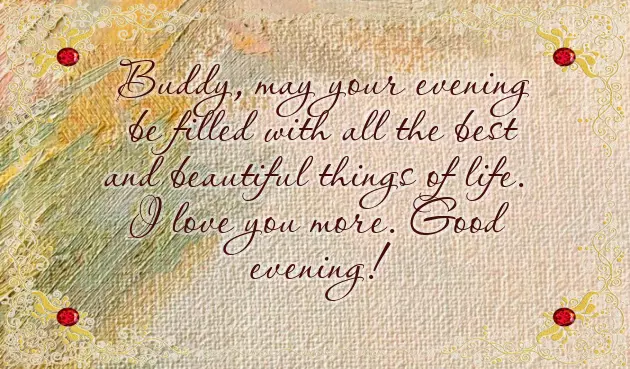 Buddy, may your evening
be filled with all the best
and beautiful things of life.
I love you more. Good
evening!